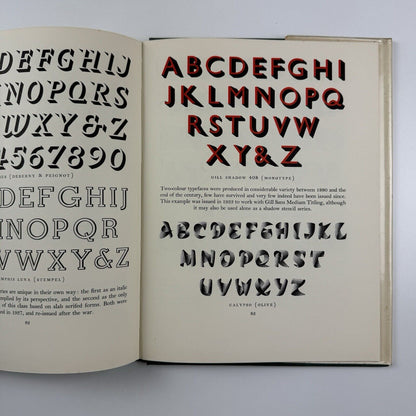 DEFGHIJ
NOPQRS
WXY&Z
4567890
(DEBERNY & PEIGNOT)
DEFGHIJ
NOPQR
WXY&Z
MPHIS LUNA (STEMPEL)
are unique in their own way: the first as an italic
plied by its perspective, and the second as the only
of this class based on slab serifed forms. Both were
in 1927, and re-issued after the war.
82
ABCDEFGHI
JKLMNOPQ
RSTUVW
XY&Z
GILL SHADOW 408 (MONOTYPE)
Two-colour typefaces were produced in considerable variety between 1890 and the
end of the century, few have survived and very few indeed have been issued since.
This example was issued in 1932 to work with Gill Sans Medium Titling, although
it may also be used alone as a shadow stencil series.
ABCDEFGHIJKL
MNOPQRST
UVWXYZ
CALYPSO (OLIVE)
83